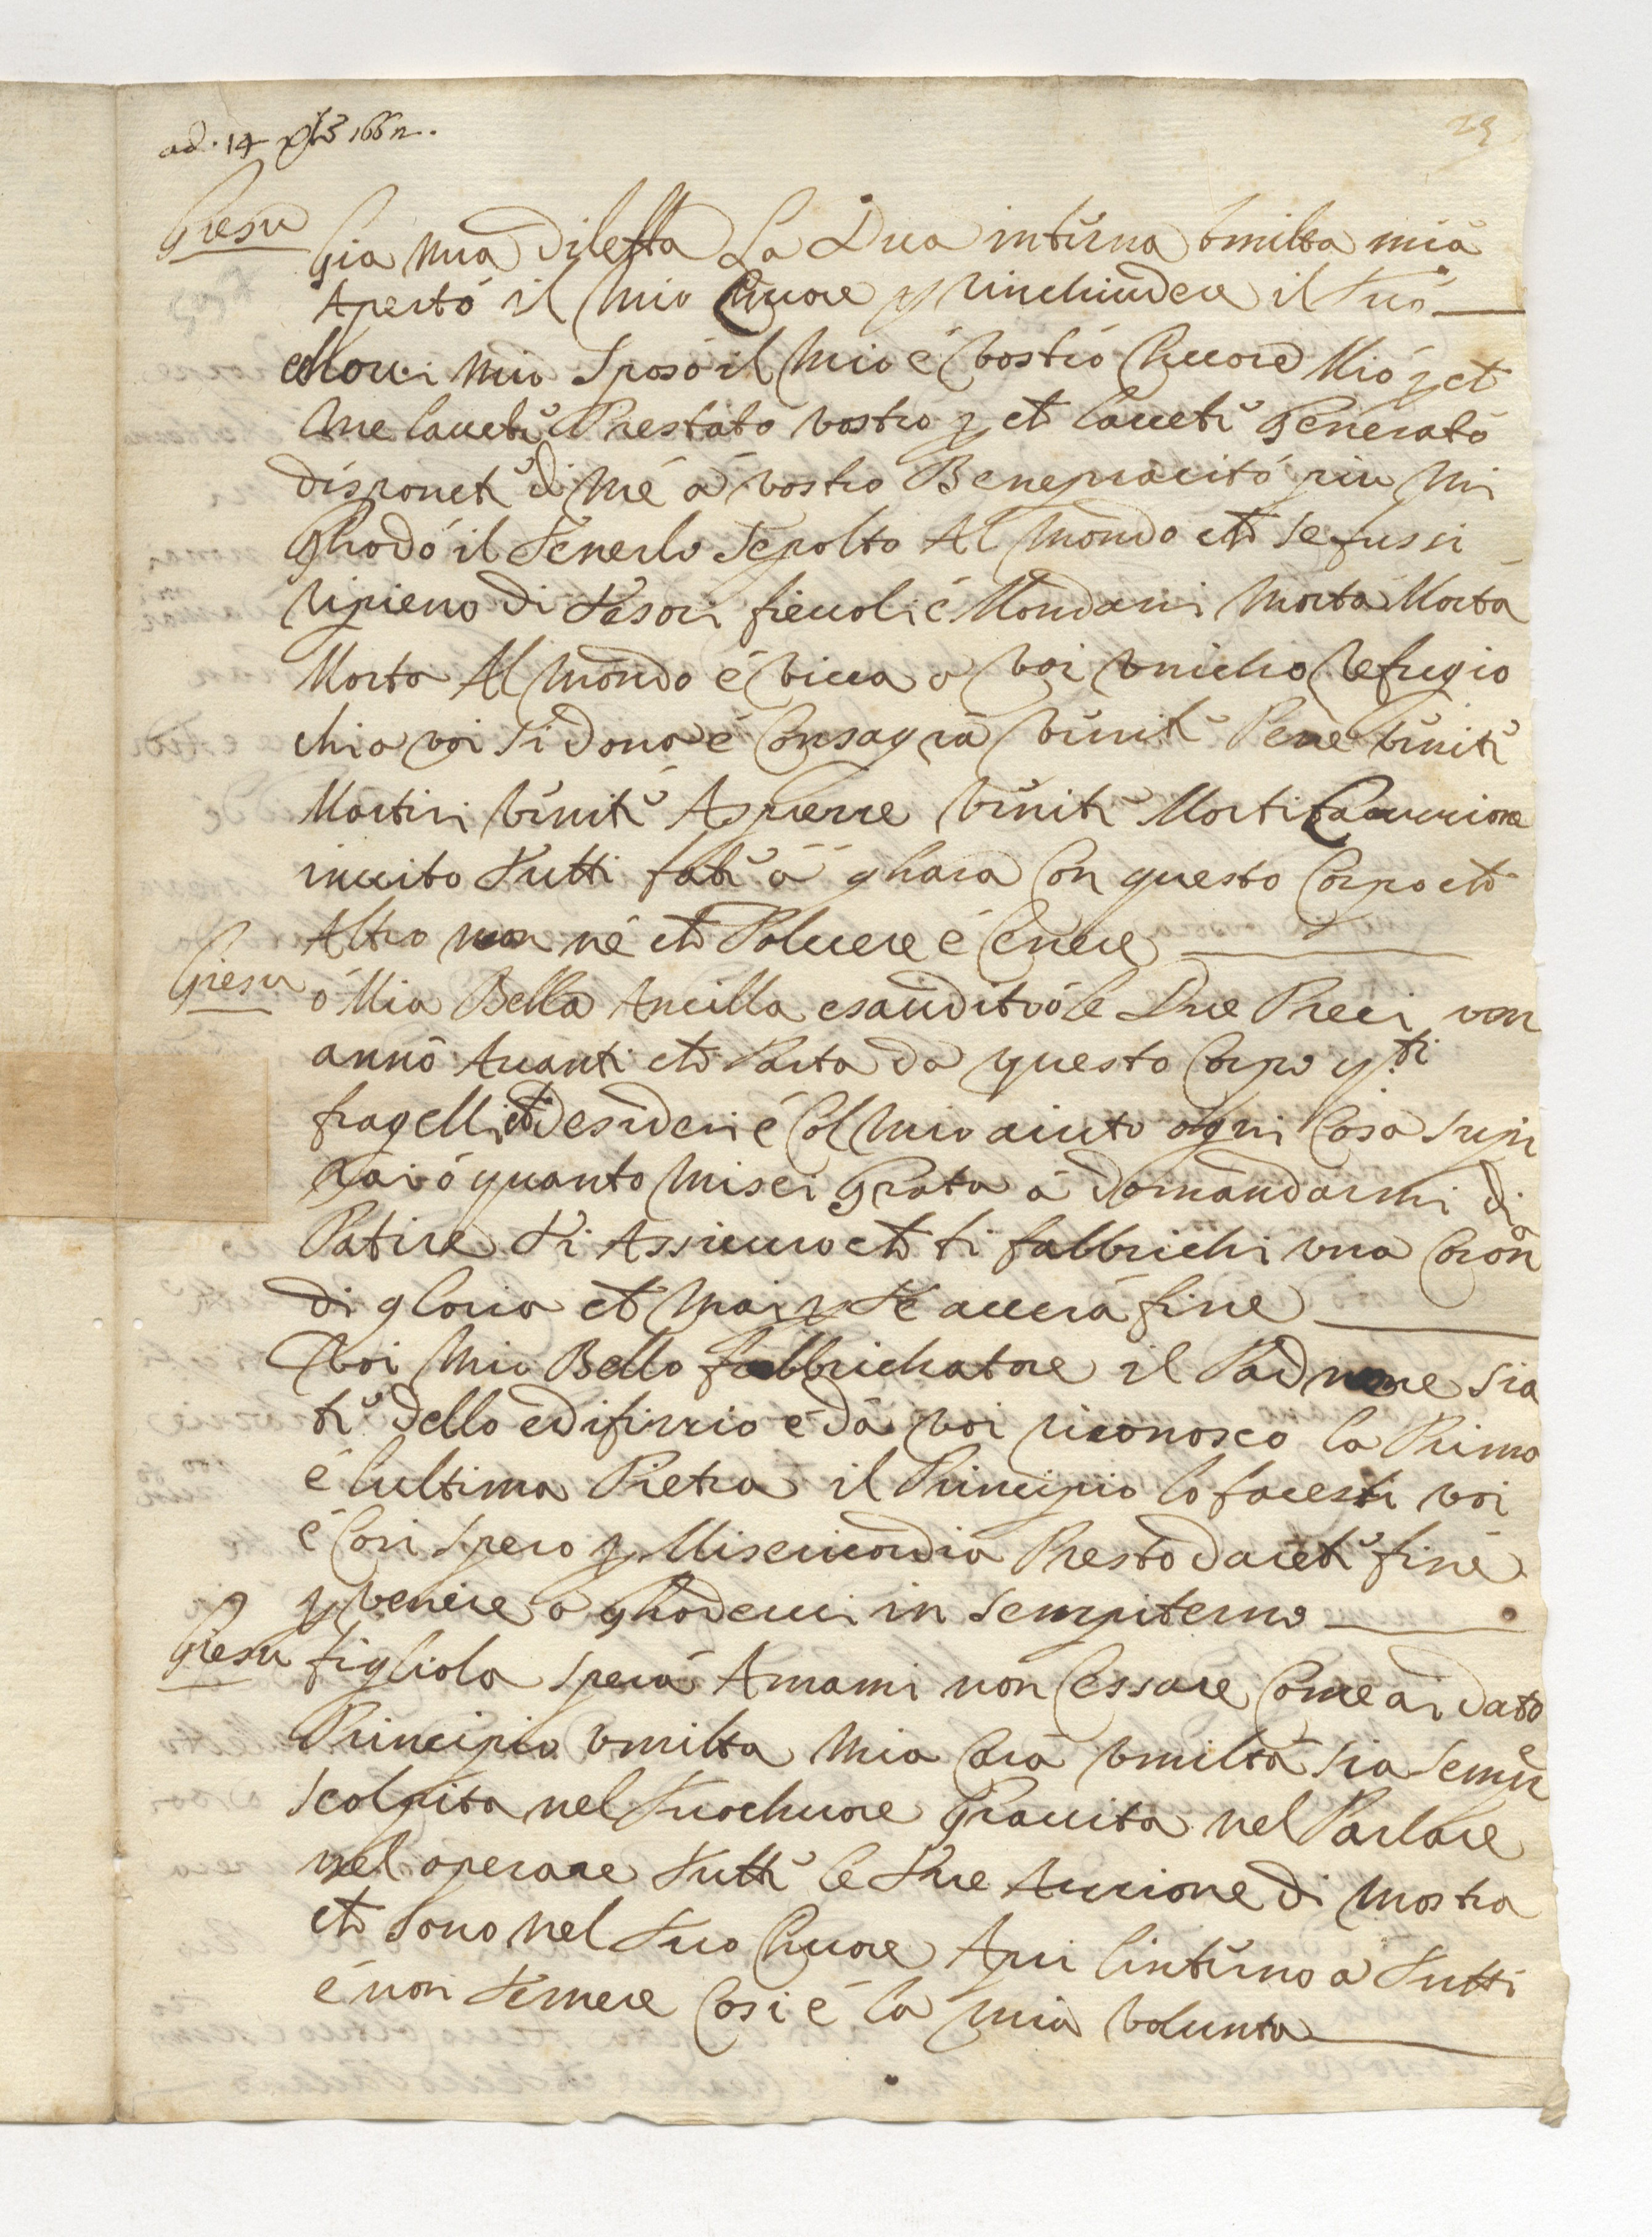 ad. 14 Xbre 1662.
23
Giesu
Gia mia diletta La Dua interna vmilta mia
Aperto il Mio Chuore p rinchiudere il tuo
Mio Sposo il Mio é vostro Chuore Mio p che
Me lauete Prestato vostro p che lauete Generato
disponete di Mé á vostro Beneprácitó piu Mi
Ghodó il Tenerlo Sepolto Al Mondo che se fussi
ripieno di tesori fieuoli é Mondani Morta Morta
Morta Al Mondo é viua a voi vnicho refugio
chia voi si dona é Consagra venite Pene venite
Martiri venite Aspresse venite Mortificazzione
inuito tutti fate á ghara Con questo Corpo che
Altro non né che Poluere é Cenere
Giesu
ó Mia Bella Ancilla esaudito le Due Preci van
anno Auanti che Parta da questo Corpo p.ti
fragelli che desideri é Col Mio aiuto ogni Cosa supe
rai ó quanto Misei Grata á domandarmi di
Patire ti Assicuro che ti fabbrichi vna Corona
di gloria che Mai p te auerá fine
Voi Mio Bello fabbrichatore il Padrone sia
te dello edifizzio é da voi riconosco la Prima
é lultima Pietra il Principio lo facesti voi
é Cosi Spero p Misericordia Presto darete fine
p venire a ghoderui in Sempiterno
Giesu
figliola spera Amami non Cessare Come ai dato
Principio vmilta Mia Cara vmilta sia Sempre
Scolpita nel tuochuore Grauita nel Parlare
nel operare tutte le tue Azzione di mostra
che Sono nel tuo Chuore Apri linterno a tutti
é non temere Cosi é la mia volunta